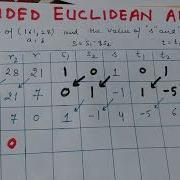 NDED EUCLIDEAN A
of (161, 28) and the value of "s" and
a, b S = S₁ - qS₂ t = t
r₂ r S₁ S₂ S t₁ t₂
28 21 1 0 1 0 1
21 7 0 1 -1 1 -5
7 0 1 -1 4 -5 6
0